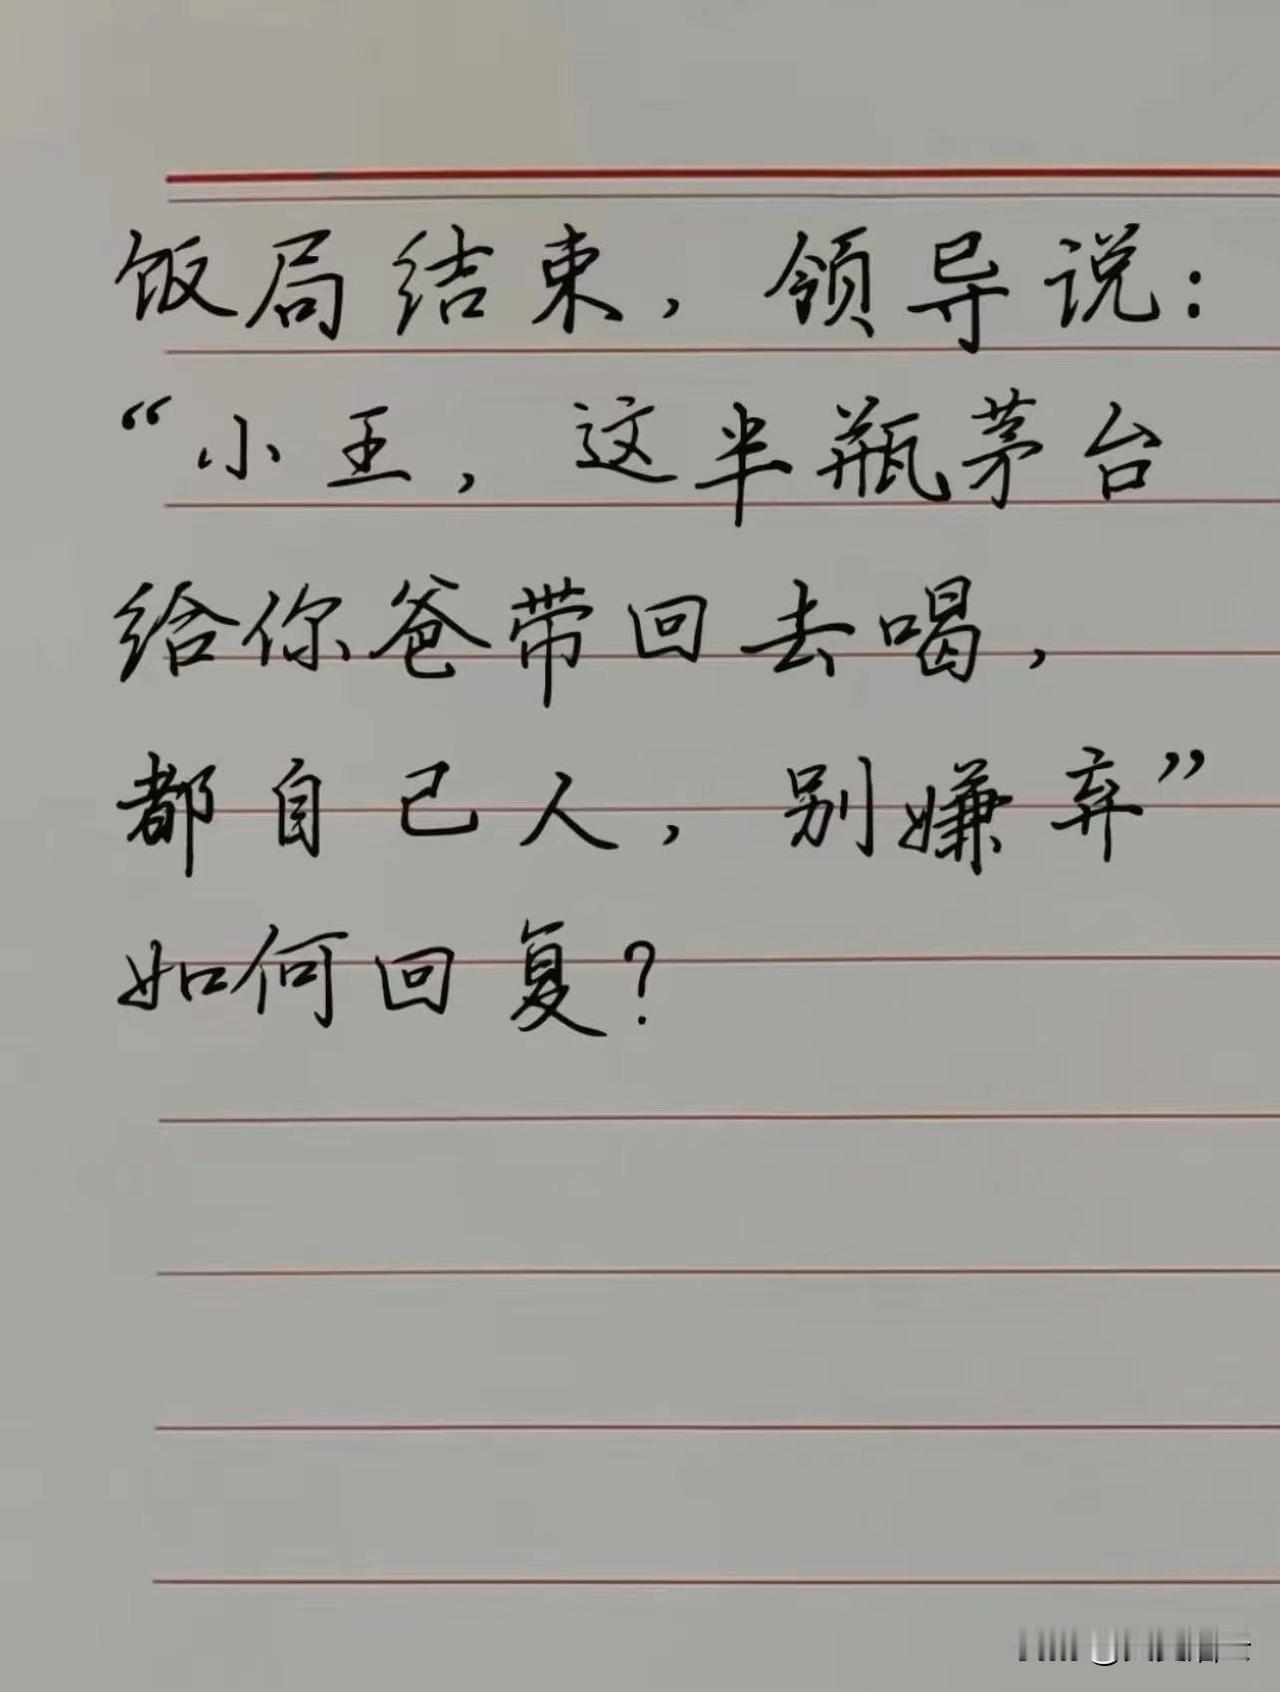 饭局结束，领导说：
“小王，这半瓶茅台
给你爸带回去喝，
都自己人，别嫌弃”
如何回复？